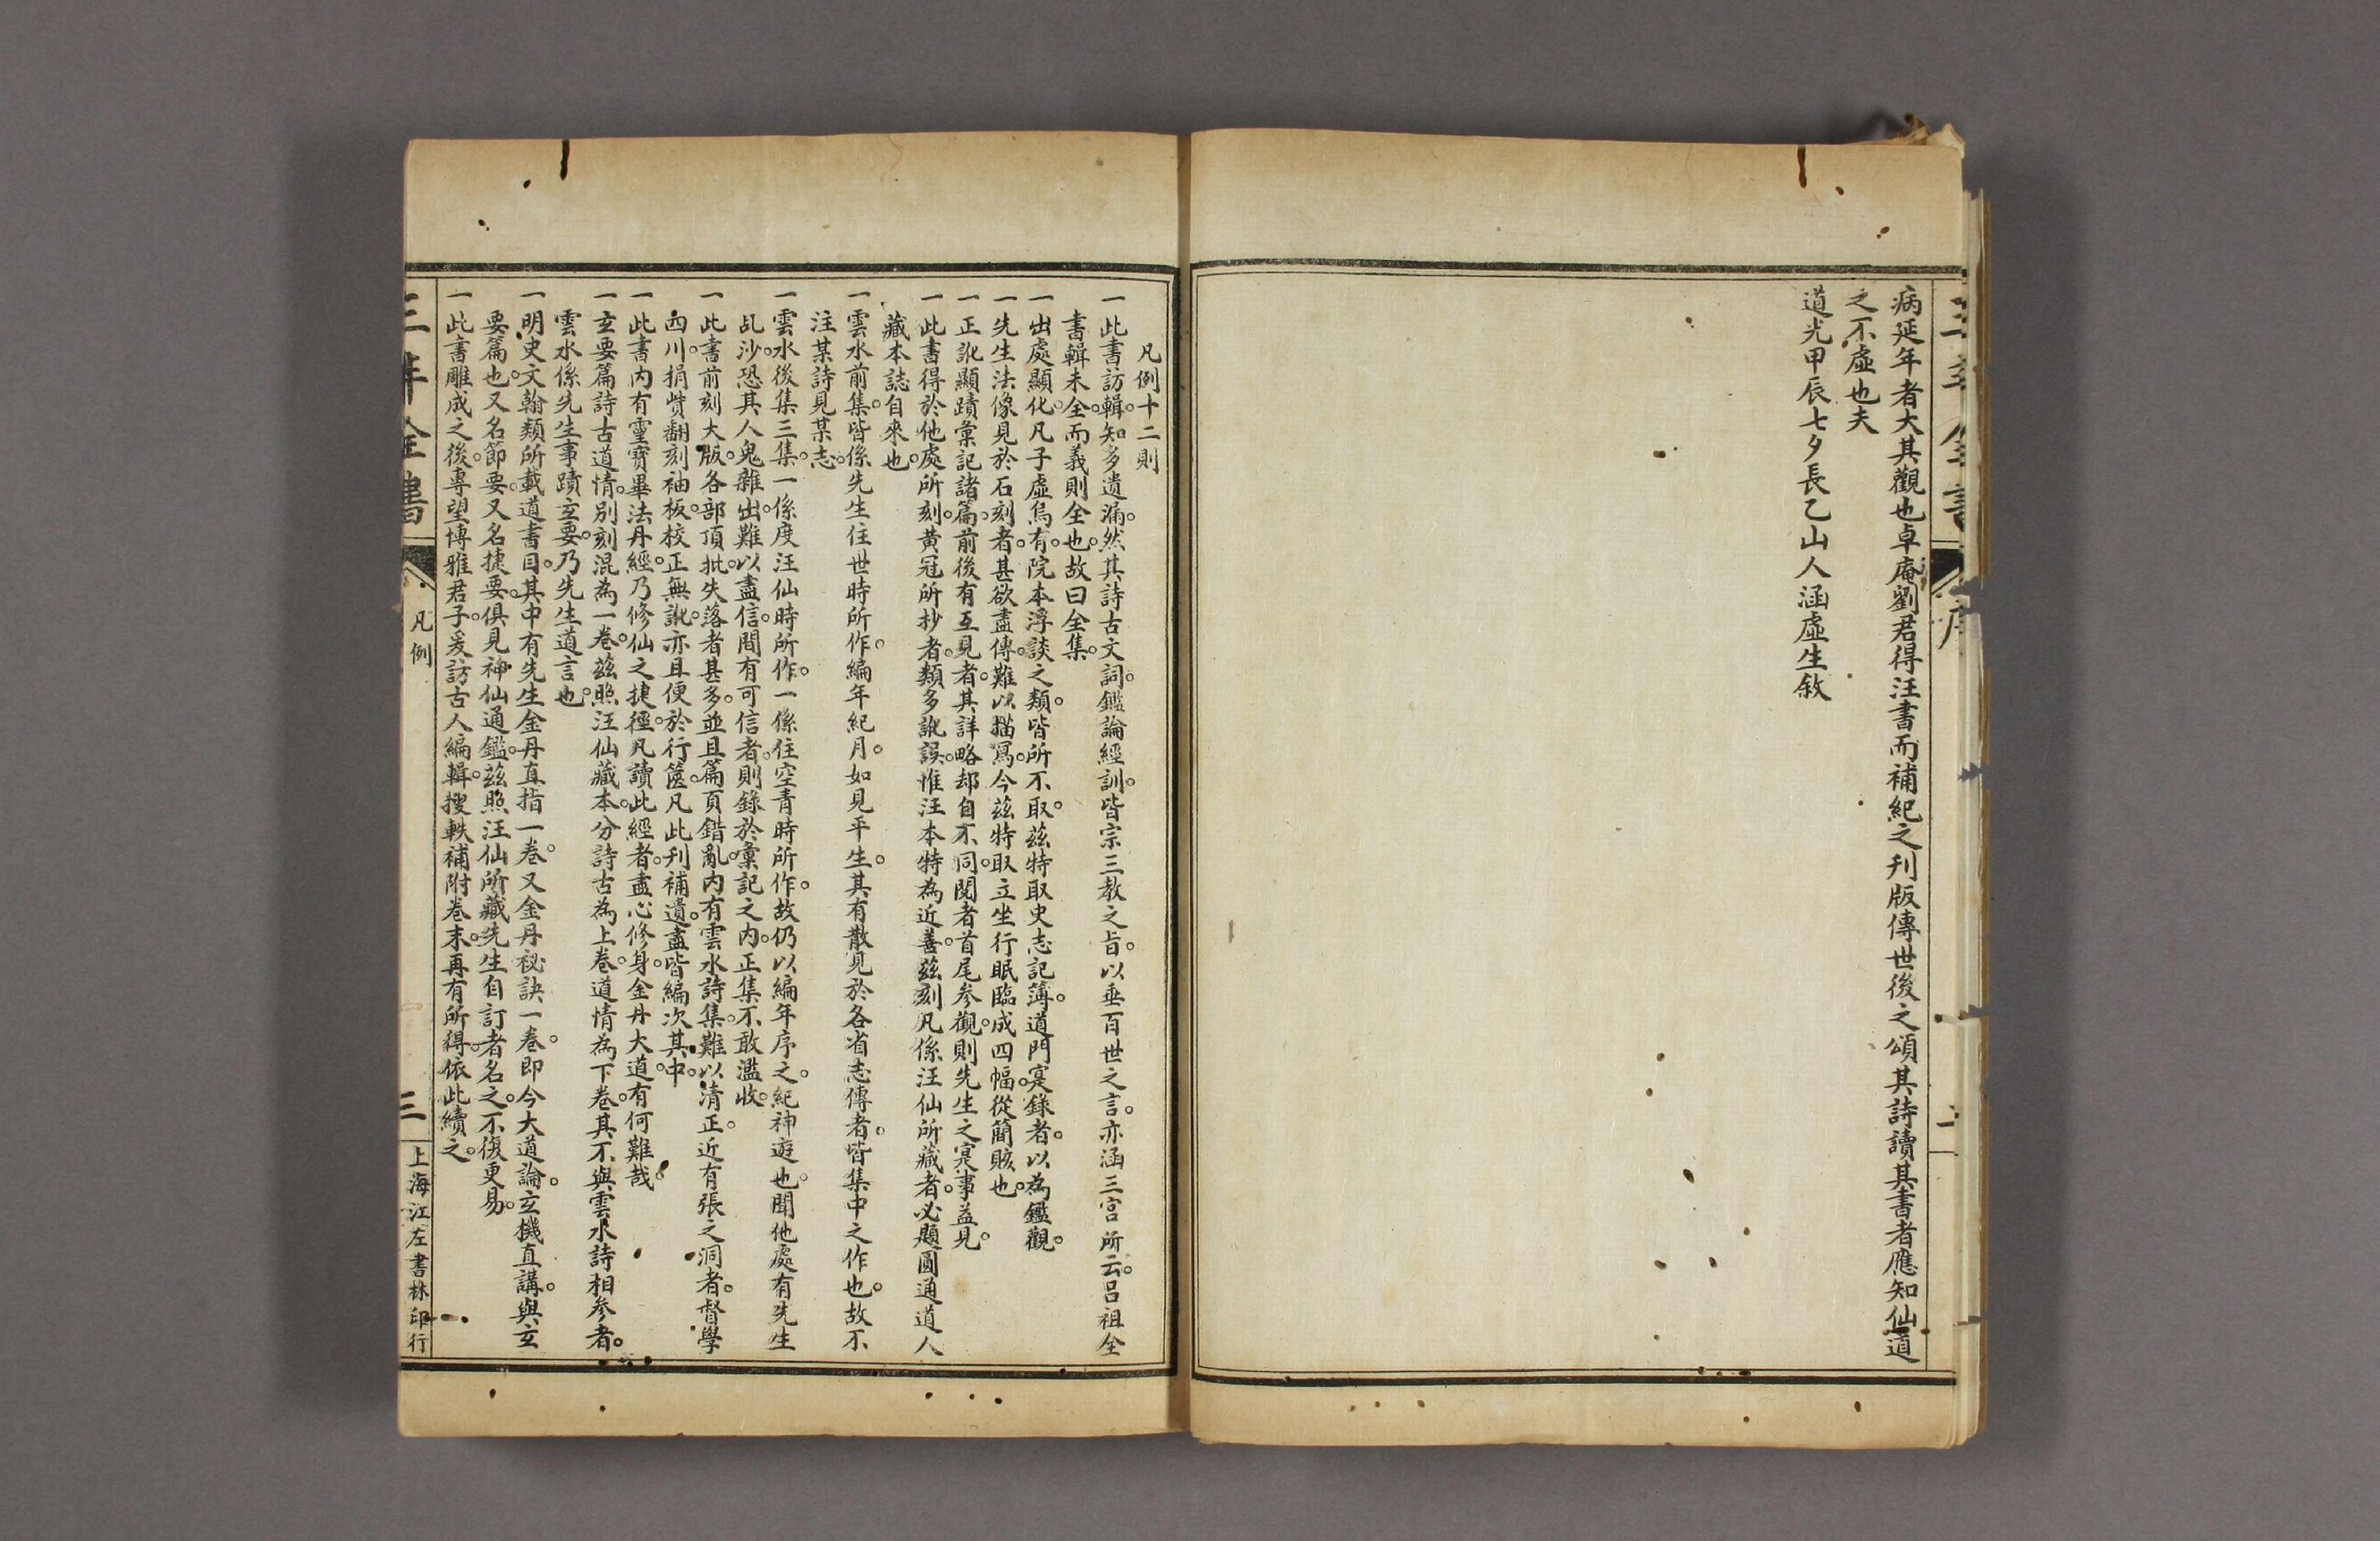 病延年者大其觀也卓庵劉君得汪書而補紀之刊版傳世後之頌其詩讀其書者應知仙道
之不虛也夫
道光甲辰七夕長乙山人涵虛生敘
凡例十二則
一此書訪輯。知多遺漏。然其詩古文詞。鑑論經訓。皆宗三教之旨。以垂百世之言。亦涵三宮所云。呂祖全
書輯未全。而義則全也。故曰全集。
一出處顯化。凡子虛烏有。院本浮談之類。皆所不取。茲特取史志記簿。道門寔錄者。以為鑑觀。
一先生法像見於石刻者。甚欲盡傳。難以描寫。今茲特取立坐行眠臨成四幅。從簡賅也。
一正訛顯蹟彙記諸篇。前後有互見者。其詳略却自不同。閱者首尾參觀。則先生之寔事益見。
一此書得於他處所刻。黃冠所抄者。類多訛誤。惟汪本特為近善。茲刻凡係汪仙所藏者。必題圓通道人
藏本誌自來也。
一雲水前集。皆係先生住世時所作。編年紀月。如見平生。其有散見於各省志傳者。皆集中之作也。故不
注某詩見某志。
一雲水後集三集。一係度汪仙時所作。一係住空青時所作。故仍以編年序之。紀神遊也。聞他處有先生
乩沙。恐其人鬼雜出。難以盡信。間有可信者。則錄於彙記之內。正集不敢濫收。
一此書前刻大版。各部頂批。失落者甚多。並且篇頁錯亂。內有雲水詩集。難以清正。近有張之洞者。督學
四川。捐貲翻刻袖板。校正無訛。亦且便於行篋。凡此刊補遺。盡皆編次其中。
一此書內有靈寶畢法丹經。乃修仙之捷徑。凡讀此經者。盡心修身。金丹大道。有何難哉。
一玄要篇詩古道情。別刻混為一卷。茲照汪仙藏本。分詩古為上卷。道情為下卷。其不與雲水詩相參者。
雲水係先生事蹟。玄要。乃先生道言也。
一明史文翰類所載道書目。其中有先生金丹直指一卷。又金丹祕訣一卷。即今大道論。玄機直講。與玄
要篇也。又名節要。又名捷要。俱見神仙通鑑。茲照汪仙所藏。先生自訂者名之。不復更易。
一此書雕成之後。專望博雅君子。爰訪古人編輯。搜軼補附卷末。再有所得。依此續之。
凡例
三
上海江左書林印行